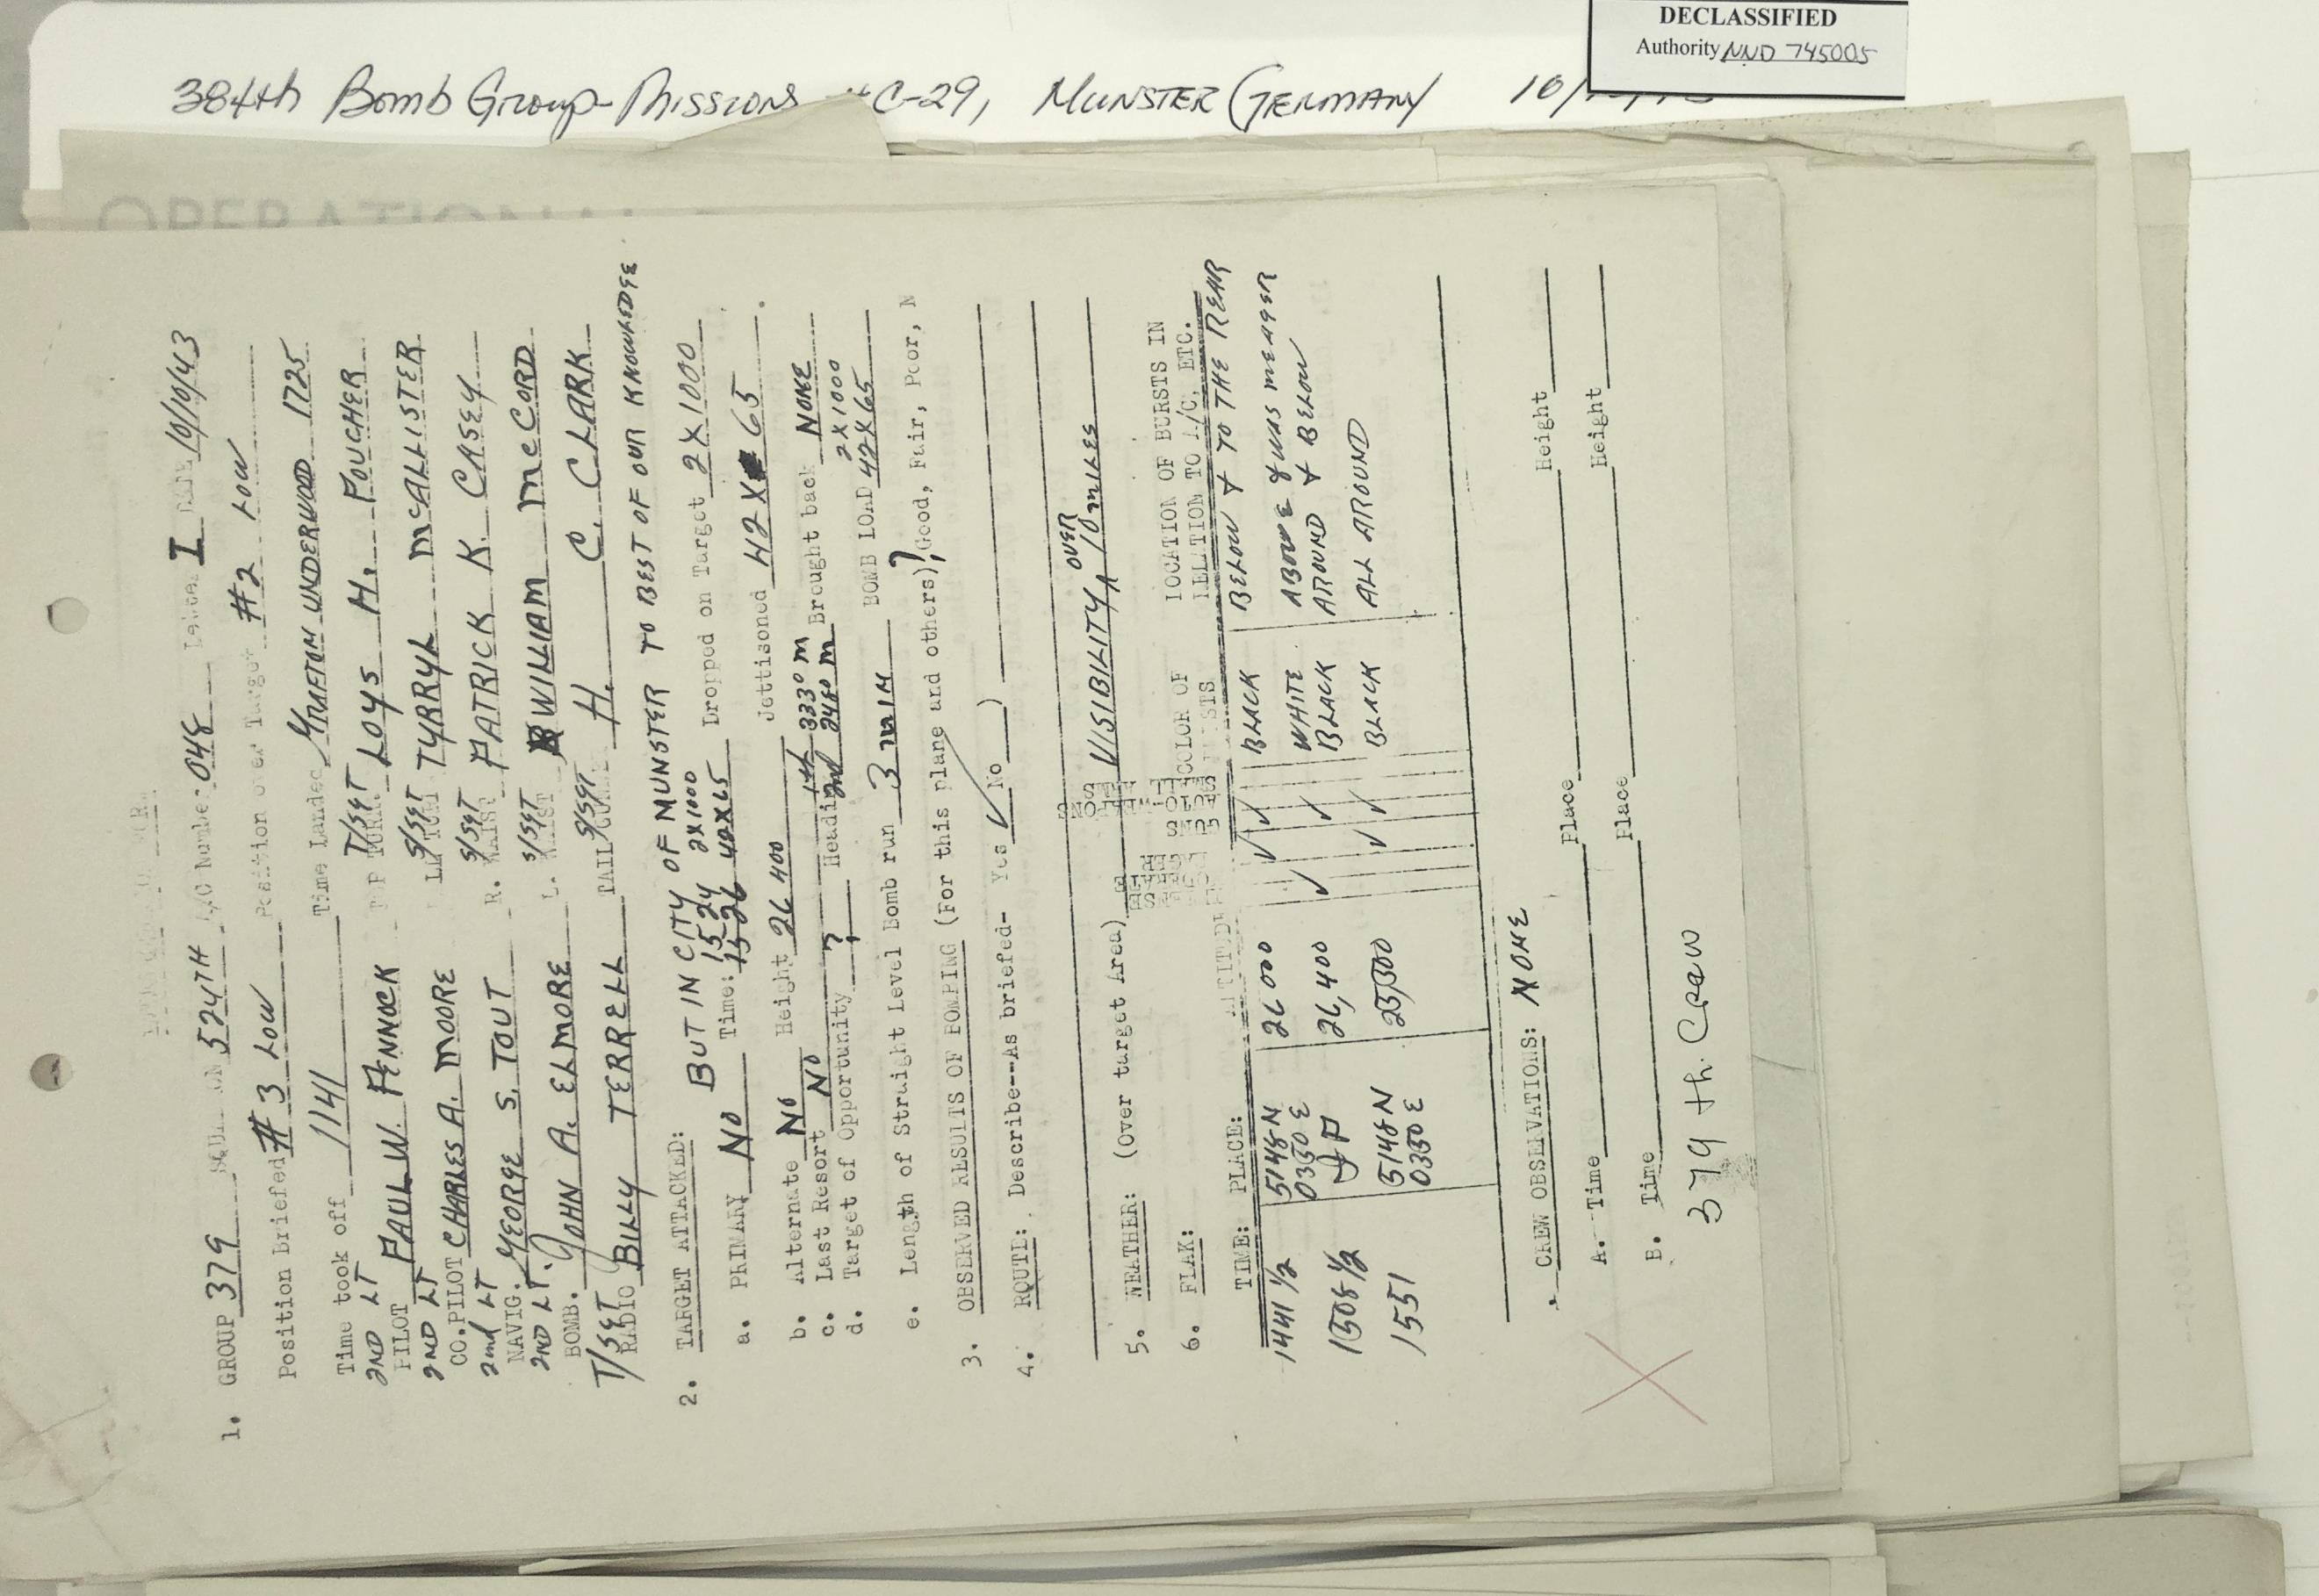 DECLASSIFIED
Authority NND 745005
384th Bomb Group-Missions C-29, MUNSTER GERMANY 10/
OPERATIONAL
1. GROUP 379 524TH A/C Number 048 Letter I DATE 10/10/43
Position briefed #3 LOW Position over Target #2 LOW
Time took off 1141 Time Landed GRAFTON UNDERWOOD 1725
2ND LT T/SGT
PILOT PAUL W. PENNOCK TOP TURRET LOYS H. POUCHER
2ND LT S/SGT
CO.PILOT CHARLES A. MOORE TYRRYL McALLISTER
2nd LT S/SGT
NAVIG. GEORGE S. TOUT R. WAIST PATRICK K. CASEY
2ND LT. S/SGT
BOMB. JOHN A. ELMORE L. WAIST WILLIAM McCORD
T/SGT S/SGT
RADIO BILLY TERRELL TAIL H. C. CLARK
2. TARGET ATTACKED:
BUT IN CITY OF MUNSTER TO BEST OF OUR KNOWLEDGE
15 24 2X1000
a. PRIMARY NO Time: 15 26 42X65 Dropped on Target 2X1000
Jettisoned 42X 65.
b. Alternate NO Height 26 400
c. Last Resort NO Heading 333° M Brought back NONE
d. Target of Opportunity ? 2nd
2X1000
e. Length of Straight Level Bomb run 3 MIN BOMB LOAD 42X65
3. OBSERVED RESULTS OF BOMBING (For this plane and others)?, Good, Fair, Poor, N
4. ROUTE: Describe--As briefed- Yes ✓ No )
5. WEATHER: (Over target Area) VISIBILITY OVER 10 MILES
6. FLAK:
LOCATION OF BURSTS IN
TIME: PLACE: ALTITUDE COLOR OF BURSTS RELATION TO A/C, ETC.
1441 1/2 5148N 0330E 26 000 ✓ ✓ BLACK BELOW & TO THE REAR
1508 1/2 26,400 ✓ ✓ WHITE BLACK ABOVE & WAS MEAGER AROUND & BELOW
1551 5148N 0330E 25,500 ✓ ✓ BLACK ALL AROUND
CREW OBSERVATIONS: NONE
A. Time Place Height
B. Time Place Height
379 th. Crew